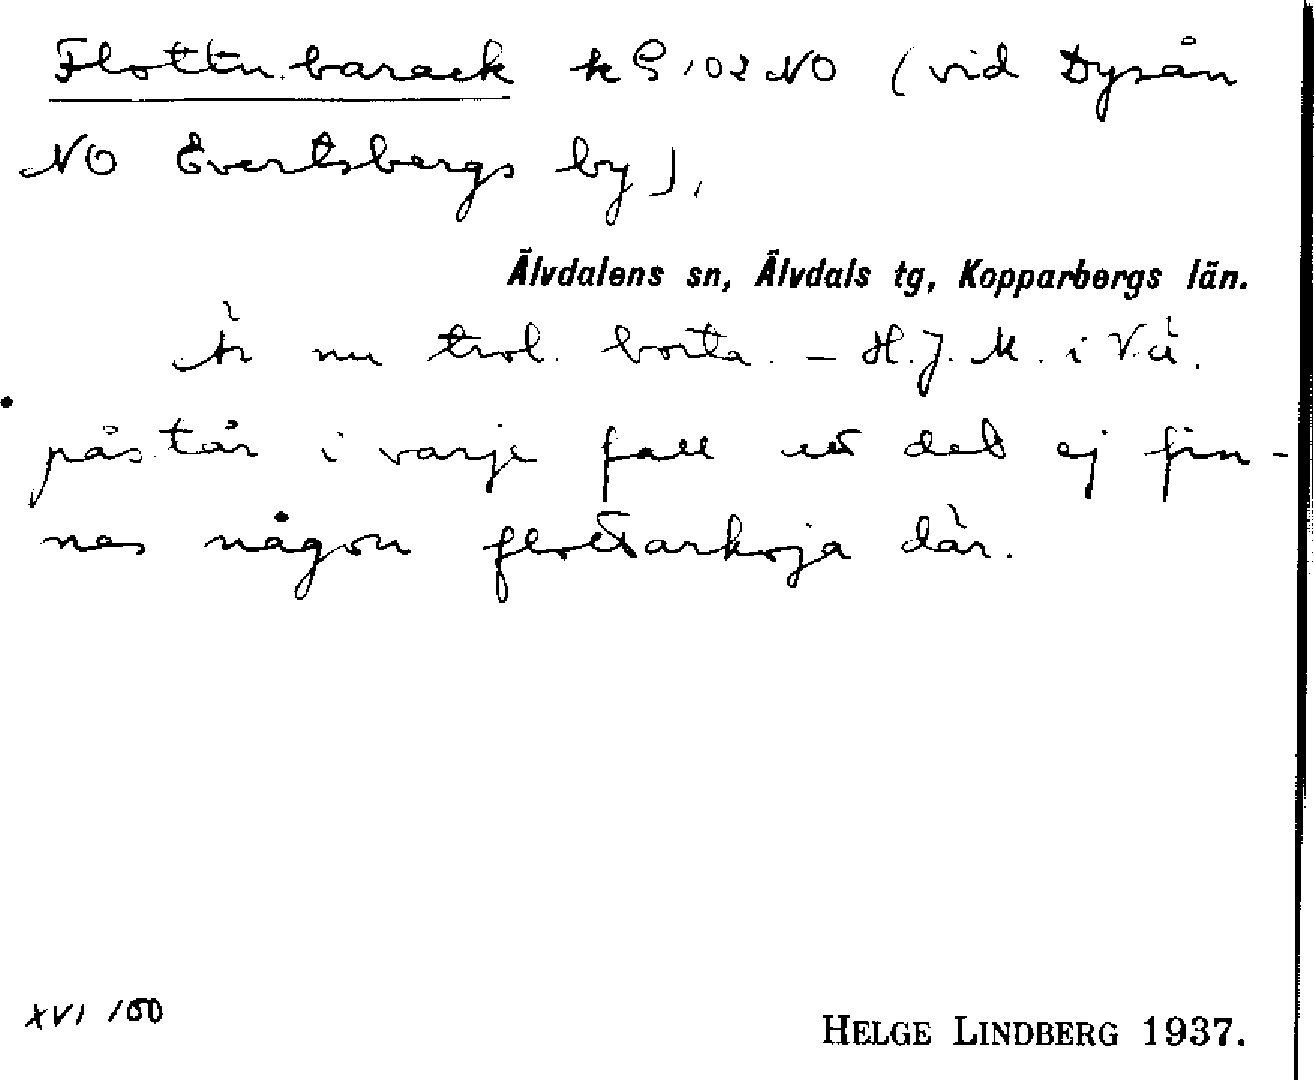 Flottn.barack k G 102 NO (vid Dysån
NO Evertsbergs by),
Älvdalens sn, Älvdals tg, Kopparbergs län.
Är nu trol. borta. – H.J.M. i V.ä.
påstår i varje fall att det ej fin-
nes någon flottarkoja där.
XVI /100
HELGE LINDBERG 1937.